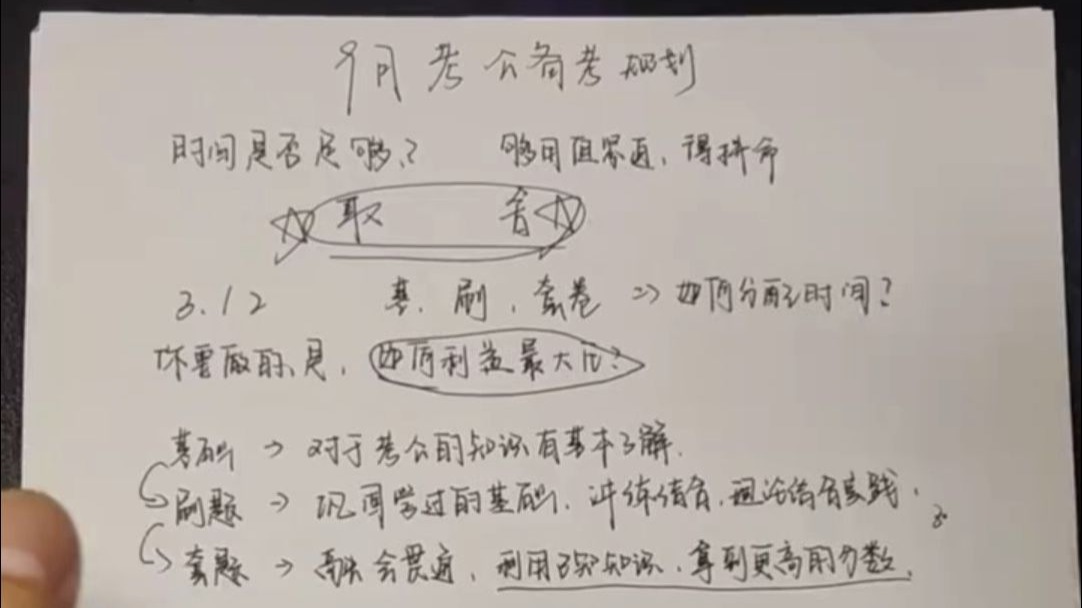 9月考公备考规划
时间是否足够? 够用但紧迫,得拼命
取 舍
3.12 基、刷、套卷 => 如何分配时间?
你要做的是,如何利益最大化?
基础 → 对于考公的知识有基本了解.
刷题 → 巩固学过的基础,讲练结合,理论结合实践.
套题 → 融会贯通,利用已知知识,拿到更高的分数.